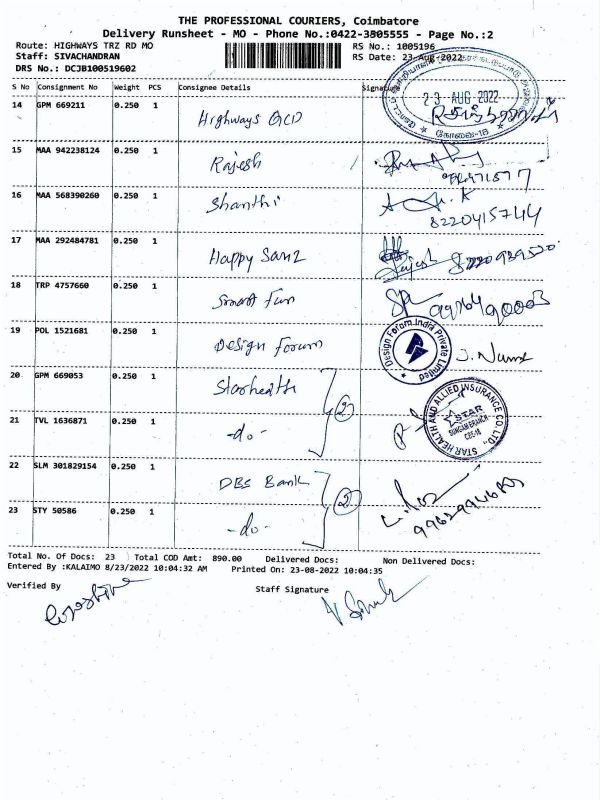 THE PROFESSIONAL COURIERS, Coimbatore
Delivery Runsheet - MO - Phone No.:0422-3305555 - Page No.:2
Route: HIGHWAYS TRZ RD MO RS No.: 1005196
Staff: SIVACHANDRAN RS Date: 23-Aug-2022
DRS No.: DCJB100519602
S No Consignment No Weight PCS Consignee Details Signature
23 AUG 2022
கோவை-18
14 GPM 669211 0.250 1 Highways QCD
15 MAA 942238124 0.250 1 Rajesh
16 MAA 568390260 0.250 1 Shanthi
8220415744
17 MAA 292484781 0.250 1 Happy Sanz
18 TRP 4757660 0.250 1 Smart Fun
19 POL 1521681 0.250 1 Design Forum
Design Forum India Private Limited
20 GPM 669053 0.250 1 Starhealth
2
STAR HEALTH AND ALLIED INSURANCE CO. LTD.,
STAR
SUNGAM BRANCH
CBE-18
21 TVL 1636871 0.250 1 -do-
22 SLM 301829154 0.250 1 DBS Bank
2
23 STY 50586 0.250 1 -do-
Total No. Of Docs: 23 Total COD Amt: 890.00 Delivered Docs: Non Delivered Docs:
Entered By :KALAIMO 8/23/2022 10:04:32 AM Printed On: 23-08-2022 10:04:35
Verified By Staff Signature